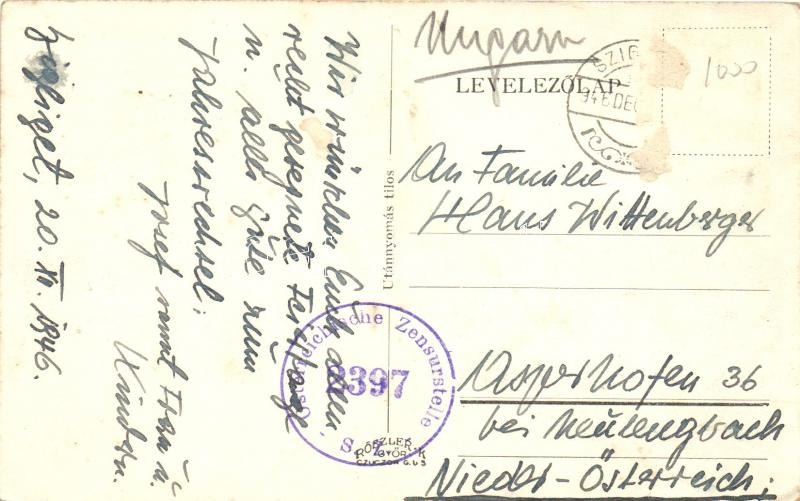 Ungarn
LEVELEZŐLAP
SZIG
946 DEC
1000
An Familie
Hans Wittenberger
Asperhofen 36
bei Neulengbach
Nieder-Österreich;
Utánnyomás tilos
Wir wünschen Euch allen,
recht gesegnete Feiertage
u. alles Gute zum
Jahreswechsel;
Josef samt Frau u.
Kindern.
Szigliget, 20. XII. 1946.
Österreichische Zensurstelle
2397
S.
RÓSZLER K
GYŐR
CZUCZOR G. U 5